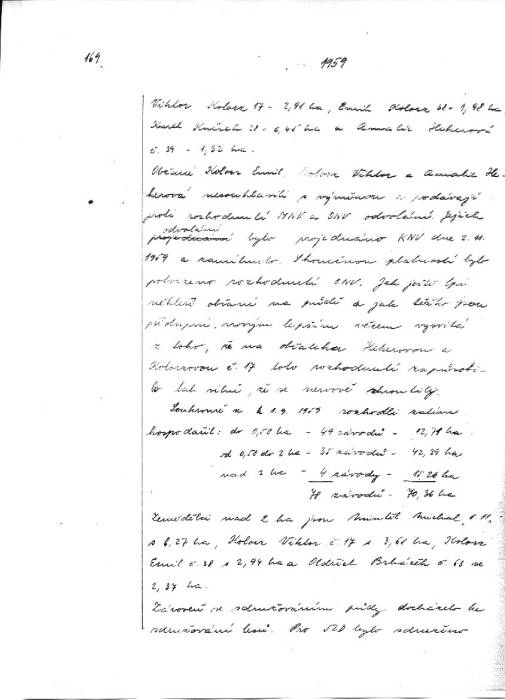 169
1959
Viktor Kolosz 17 - 2,91 ha, Emil Kolosz 38 - 1,98 ha,
Karel 28 - 0,45 ha a Amalie Hekerová
č. 39 - 1,32 ha.
Občané Kolosz Emil, Kolosz Viktor a Amalie He-
kerová nesouhlasili s výměnou a podávají
proti rozhodnutí MNV a ONV odvolání. Jejich
odvolání
projednávání bylo projednáno KNV dne 2. 11.
1959 a zamítnuto. Skonečnou platností bylo
potvrzeno rozhodnutí ONV. Jak ještě lpí
někteří občané na půdě a jak těžko jsou
přístupni novým lepším věcem vysvítá
z toho, že na občanku Hekerovou a
Koloszovou č. 17 toto rozhodnutí zapůsobi-
lo tak silně, že se nervově zhroutily.
Souhrnně k 1. 9. 1959 rozhodli
hospodařit: do 0,50 ha - 49 závodů - 12,71 ha
od 0,50 do 2 ha - 25 závodů - 42,39 ha
nad 2 ha - 4 závody - 15,26 ha
78 závodů - 70,36 ha
Zemědělci nad 2 ha jsou Michal č. 11.
s 6,27 ha, Kolosz Viktor č. 17 s 3,68 ha, Kolosz
Emil č. 38 s 2,94 ha a Oldřich č. 63 se
2,37 ha.
Zároveň se sdružováním půdy docházelo ke
sdružování lesů. Pro JZD bylo sdruženo